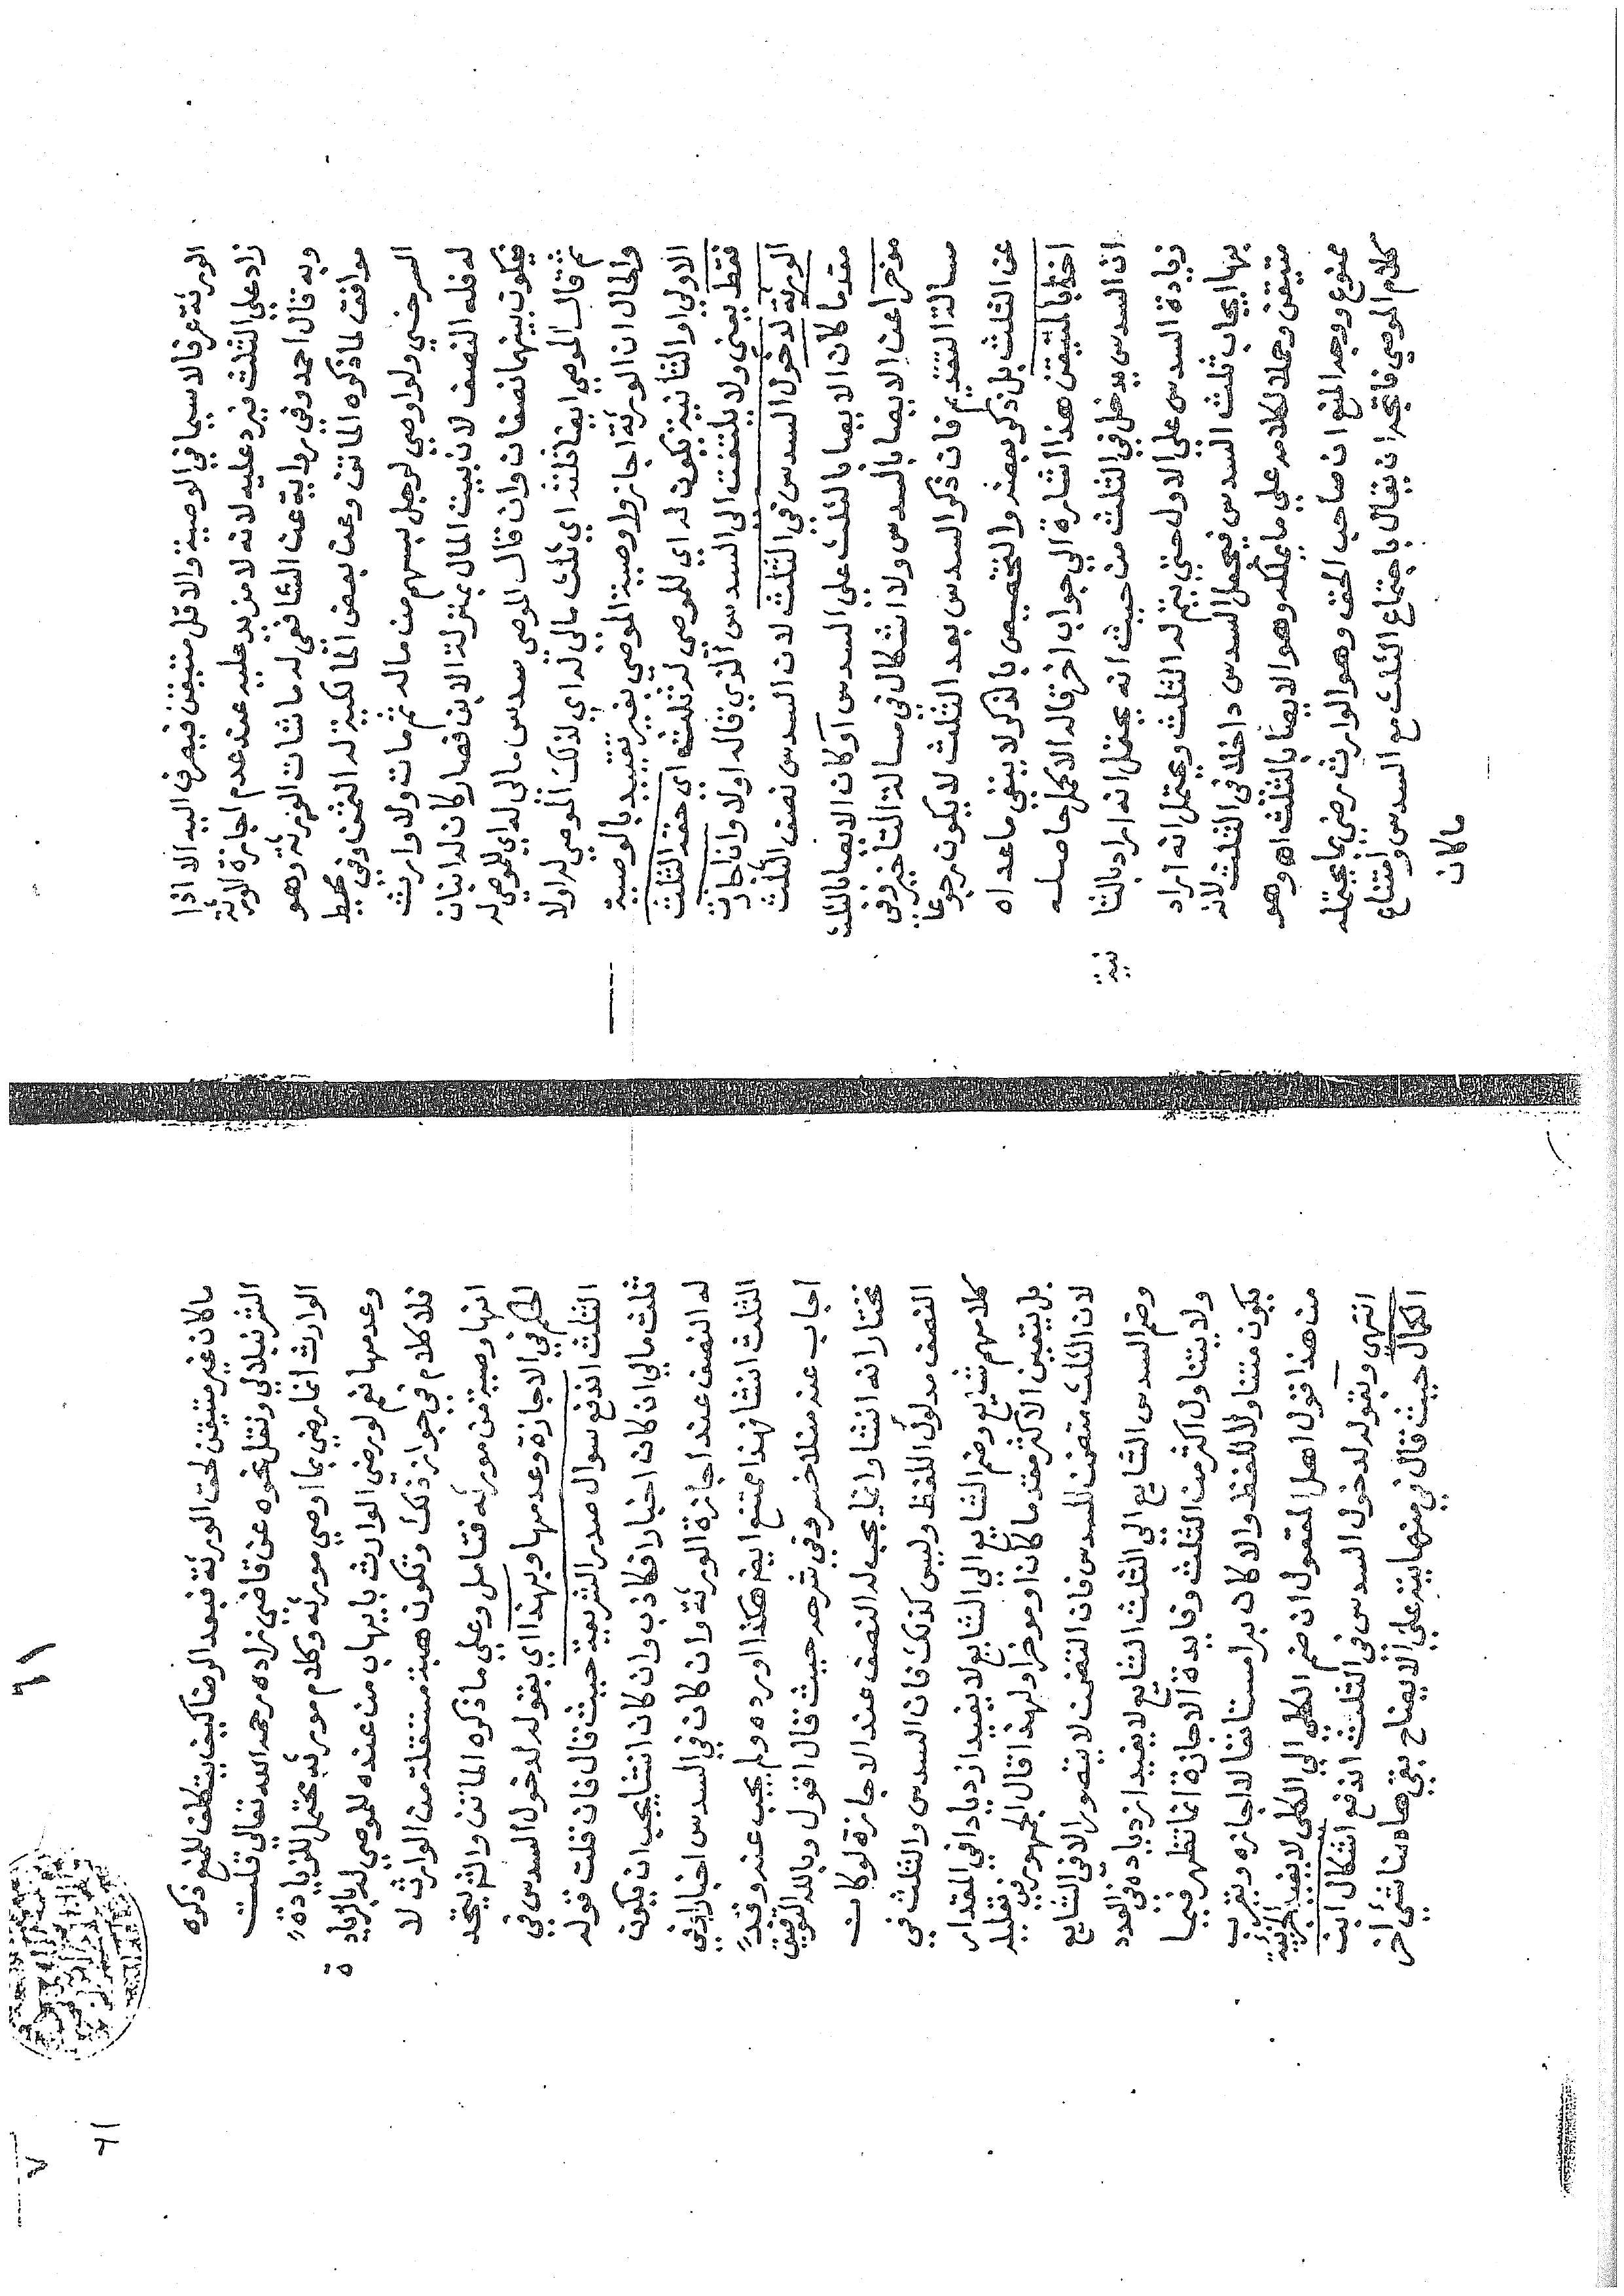 الورثة عرفا لاسيما في الوصية والاقل متيقن فيصرف اليه الا اذا
زاد علي الثلث فيرد عليه لانه لا مزيد عليه عند عدم اجازة الورثة
وبه قال احمد وفي رواية عن الشافعي له ما شات الورثة وهو
موافق لما ذكره الماتن وعن بعض المالكية له الثمن وفي محيط
السرخسي ولو اوصي لرجل بسهم من ماله ثم مات ولا وارث
له فله النصف لان بيت المال بمنزلة الابن فصار كان له ابنان
فيكون بينهما نصفان وان قال الموصي سدس مالي له اي للموصي له
ثم قال الموصي ايضا ثلثه اي ثلث مالي له اي لذلك الموصي له اولا
والحال ان الورثة اجازوا وصية الموصي بغير تقييد بالوصية
الاولي او الثانية تكون له اي للموصي له ثلثه اي حقه الثلث
فقط يعني ولا يلتفت الي السدس الذي قاله اولا وان اجازت
الورثة لدخول السدس في الثلث لان السدس نصف الثلث
مقدما كان الايصا بالثلث علي السدس او كان الايصا بالثلث
موخرا عن الايصا بالسدس ولا اشكال في مسالة التاخير وفي
مسالة التقديم فان ذكر السدس بعد الثلث لا يكون رجوعا
عن الثلث بل ذكر بعضه والتخصيص بالذكر لا ينفي ما عداه
اخذا بالمتيقن هذا اشارة الي جواب اخر قاله الاكمل حاصله
ان السدس يدخل في الثلث من حيث انه يحتمل انه اراد بالثانية
زيادة السدس علي الاول حتي يتم له الثلث ويحتمل انه اراد
بها ايجاب ثلث السدس فيجعل السدس داخلا في الثلث لانه
متيقن وحملا لكلامه علي ما يملكه وهو الايصا بالثلث اه وهو
ممنوع ووجه المنع ان صاحب الحق وهو الوارث رضي بما يحتمله
كلام الموصي فاتجه ان يقال باجتماع الثلث مع السدس وامتناع
ما كان
٦١
ما كان غير متيقن لحق الورثة فبعد الرضا كيف يتكلف للمنع ذكره
الشرنبلالي ونقل نحوه عن قاضي زاده رحمه الله تعالي قلت
الوارث انما رضي بما اوصي مورثه وكلام مورثه يحتمل للزيادة
وعدمها نعم لو رضي الوارث بايهاب من عنده للموصي له بالزيادة
فلا كلام في جواز ذلك وتكون هبة مستقلة من الوارث لا
انها وصية من مورثه فتامل وعلي ما ذكره الماتن والم يتحد
الحكم في الاجازة وعدمها وبهذا اي بقوله لدخول السدس في
الثلث اندفع سوال صدر الشريعة حيث قال فان قلت قوله
ثلث مالي ان كان اخبارا فكاذب وان كان انشا يجب ان يكون
له النصف عند اجازة الورثة وان كان في السدس اخبارا وفي
الثلث انشا فهذا ممتنع ايضا هكذا اورده ولم يجب عنه وقد
اجاب عنه منلا خسرو في شرحه حيث قال اقول وبالله التوفيق
نختار انه انشا وانما يجب له النصف عند الاجازة لو كان
النصف مدلول اللفظ وليس كذلك فان السدس والثلث في
كلامهم شايع وضم الشايع الي الشايع لا يفيد ازديادا في المقدار
بل يتعين الاكثر مقدما كان او موخرا ولهذا قال الجمهور في تعليله
لان الثلث متضمن للسدس فان التضمن لا يتصور الا في الشايع
وضم السدس الشايع الي الثلث الشايع لا يفيد ازدياده في العدد
ولا يتناول اكثر من الثلث وفايدة الاجازة انما تظهر فيما
يكون متناولا للفظ والا كان برا مستانفا لا اجازه ويقرب
من هذا قول اهل المعقول ان ضم الكلي الي الكلي لا يفيد الجزئية
انتهي وبقوله لدخول السدس في الثلث اندفع اشكال ابن
الكمال حيث قال في منهايته علي الايضاح بقي هاهنا شئ اخر
٦١
٧